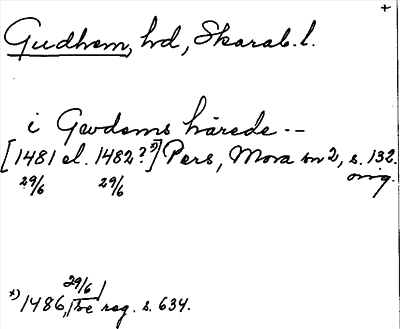 +
Gudhem, hd, Skarab. l.
i Gwdems härede --
[1481 el. 1482? *)] Pers, Mora sn 2, s. 132.
29/6 29/6 orig.
29/6
*) 1486, se reg. s. 634.